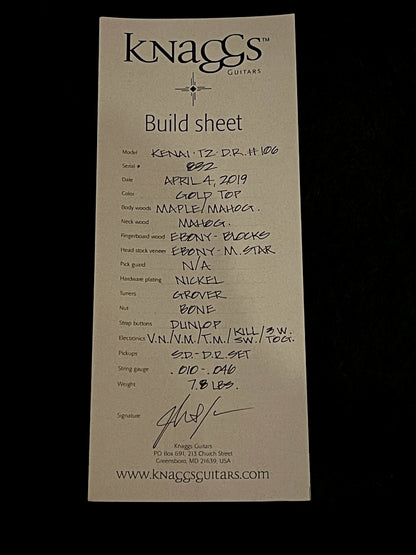 Knaggs™
Guitars
Build sheet
Model KENAI·T2·D.R.#106
Serial # 832
Date APRIL 4, 2019
Color GOLD TOP
Body woods MAPLE/MAHOG.
Neck wood MAHOG.
Fingerboard wood EBONY-BLOCKS
Head stock veneer EBONY-M.STAR
Pick guard N/A
Hardware plating NICKEL
Tuners GROVER
Nut BONE
Strap buttons DUNLOP
Electronics V.N./V.M./T.M./KILL SW./3W. TOG.
Pickups S.D.-D.R.SET
String gauge .010-.046
Weight 7.8 LBS.
Signature
Knaggs Guitars
PO Box 691, 213 Church Street
Greensboro, MD 21639, USA
www.knaggsguitars.com